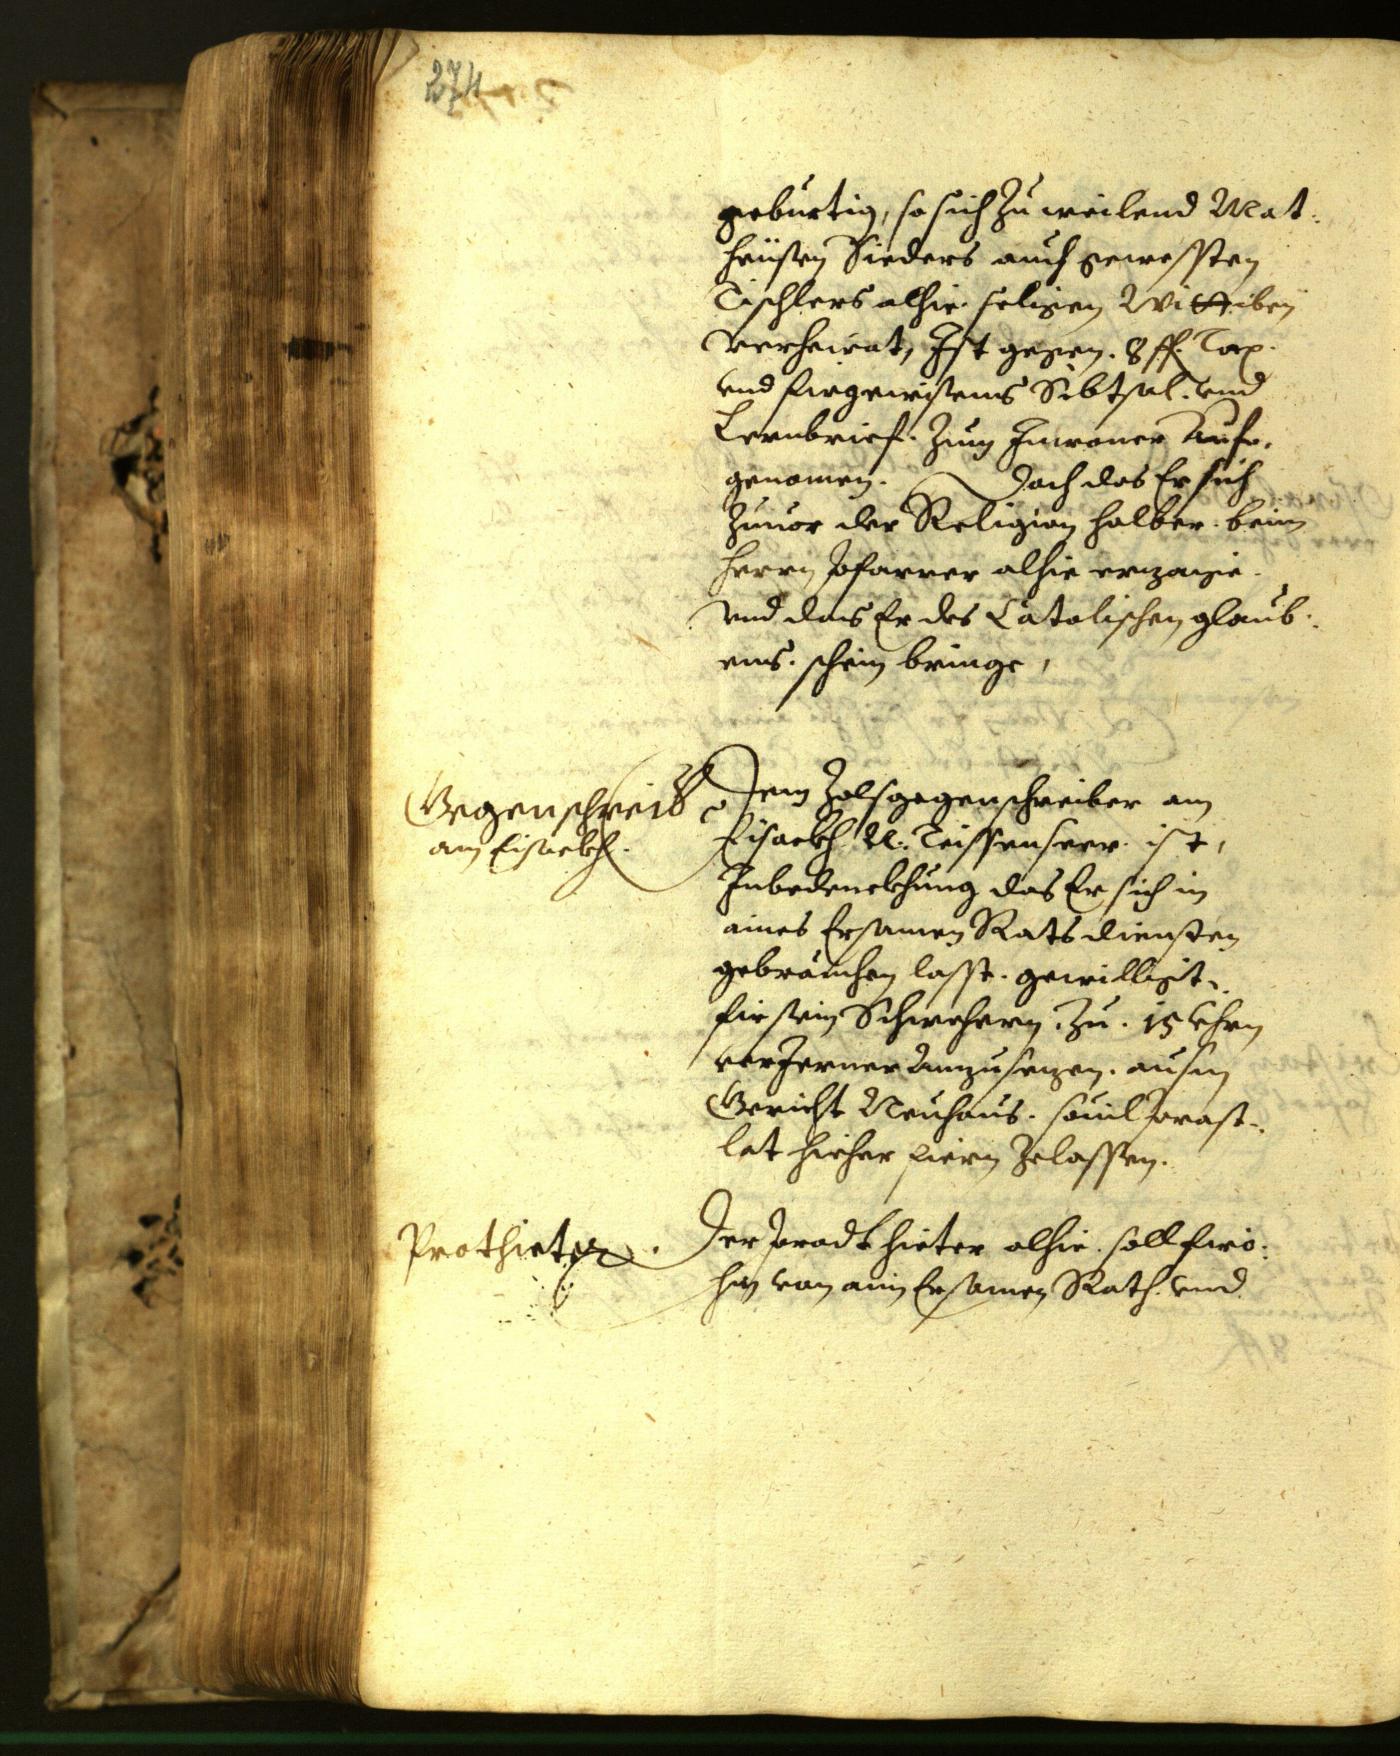 274
gebürtig, so sich zu weilend Mat:
heüsen Sieders auch gewessten
Tischlers alhie seligen Wittiben
verheirat, Ist gegen 8 fl. Tax
vnd fürgewisens Gebtsal. vnd
Lernbrief. zum Inwoner aufe.
genomen. Doch das Er sich
zuuor der Religion halber. beim
herrn Pfarrer alhie erzaige.
vnd das Er des Catolischen glaub:
ens. schein bringe,
Gegenschreib
am Eisackh.
Dem Zolsgegenschreiber am
Eisackh N. Teissenseer ist,
Inbedenckhung das Er sich in
aines Ersamen Rats diensten
gebrauchen lasst. gewilligt.
für sein Schwehern. zu. 15 Ehrn
anzusezen. aus m
Gericht Neuhaus. souil Prast
let hieher fiern zelassen.
Prothieter.
Der Prodthieter alhie. soll firo:
hin von aim Ersamen Rath. vnd